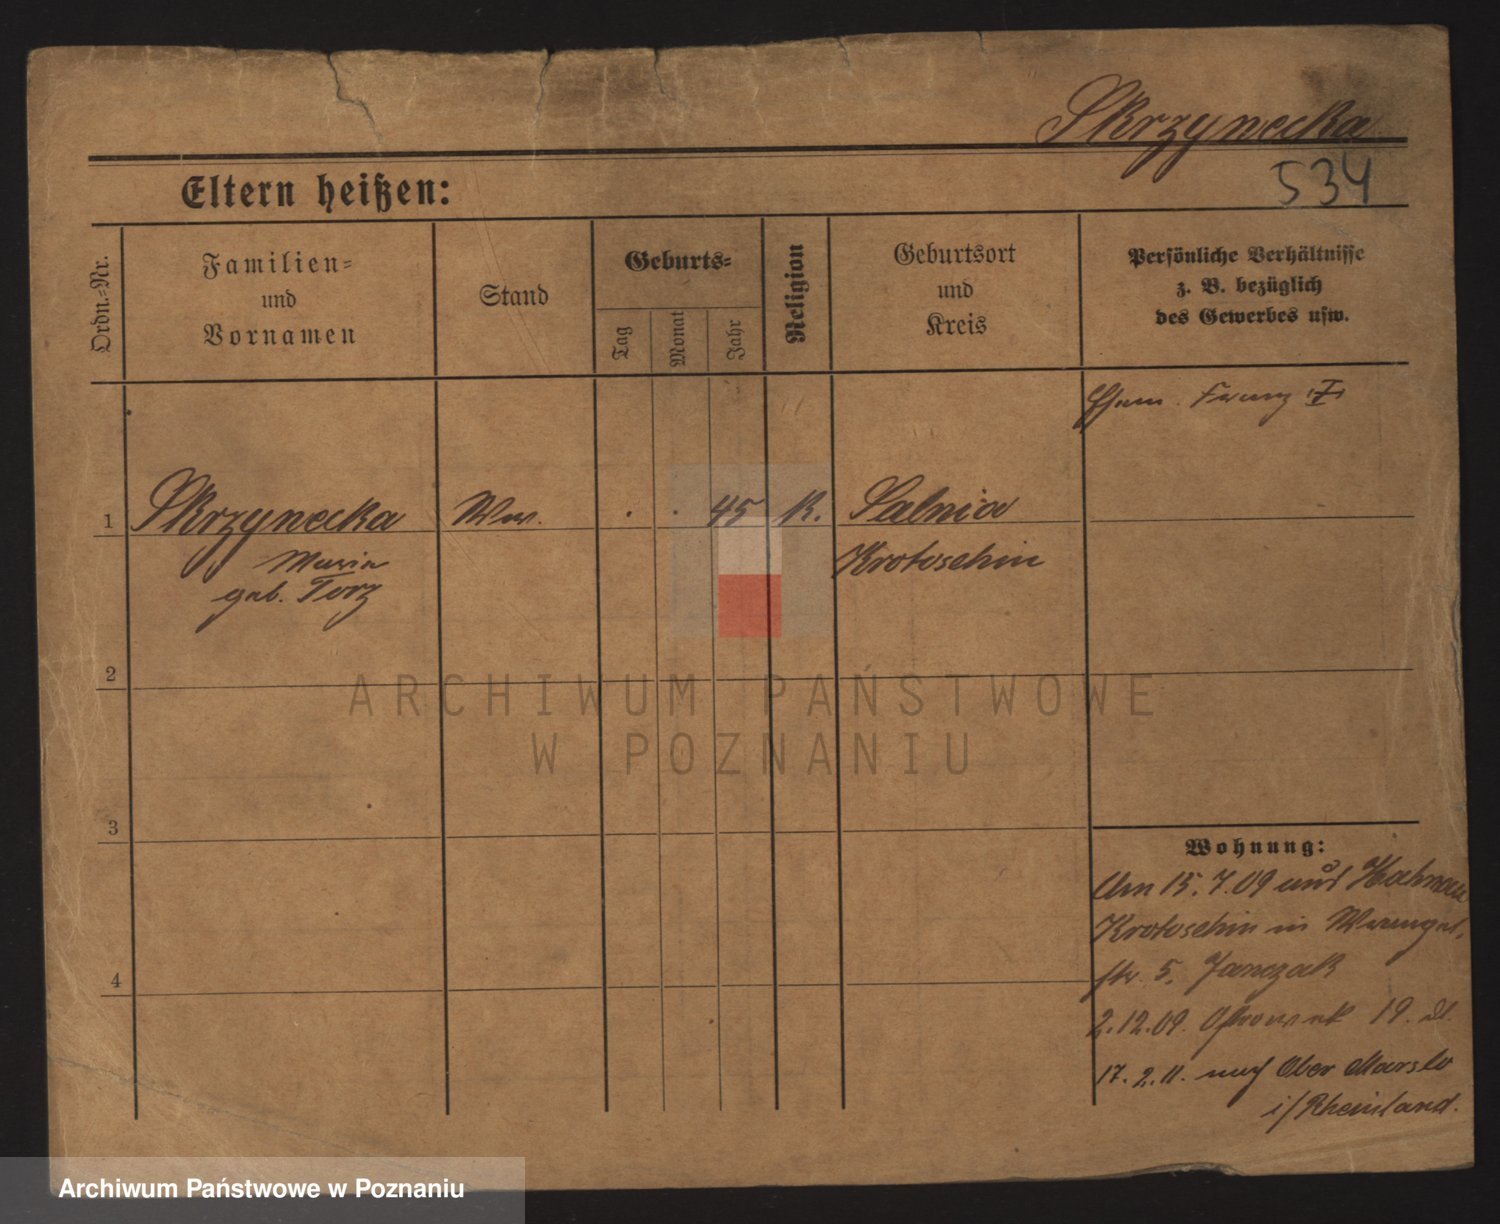 Skrzynecka
534
Eltern heißen:
Ordn.=Nr.
Familien=
und
Vornamen
Stand
Geburts=
Tag
Monat
Jahr
Religion
Geburtsort
und
Kreis
Persönliche Verhältnisse
z. B. bezüglich
des Gewerbes usw.
Ehem. Franz
1
Skrzynecka
Ww.
. . 45
K.
Salnia
Maria
geb. Torz
Krotoschin
2
3
4
Wohnung:
Am 15.7.09 aus
Krotoschin in
str. 5. Janczak
2.12.09. 19.
17.2.11. nach Ober Marslo
i/Rheinland.
ARCHIWUM PAŃSTWOWE
W POZNANIU
Archiwum Państwowe w Poznaniu